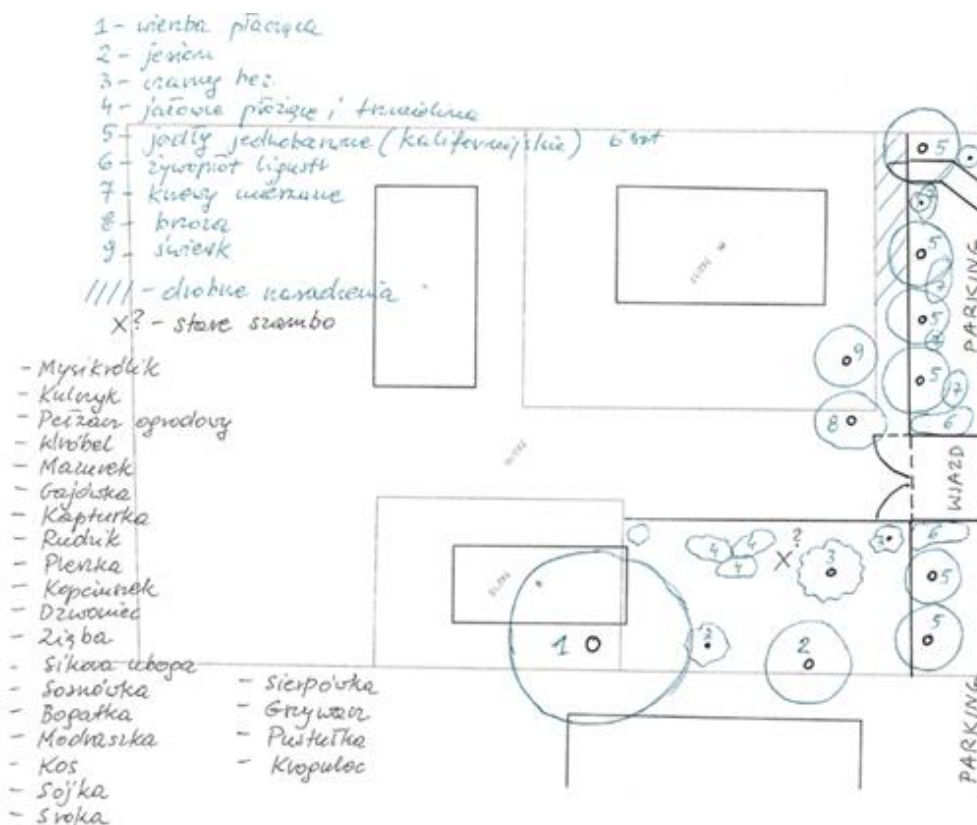 1 - wierzba płacząca
2 - jesion
3 - czarny bez
4 - jałowce płożące i trzmielina
5 - jodły jednobarwne (kalifornijskie) 6 szt
6 - żywopłot ligustr
7 - krzewy mieszane
8 - brzoza
9 - świerk
//// - drobne nasadzenia
X? - stare szambo
- Mysikrólik
- Kulczyk
- Pełzacz ogrodowy
- Wróbel
- Mazurek
- Gajówka
- Kapturka
- Rudzik
- Pleszka
- Kopciuszek
- Dzwoniec
- Zięba
- Sikora uboga
- Sosnówka
- Bogatka
- Modraszka
- Kos
- Sójka
- Sroka
- Sierpówka
- Grzywacz
- Pustułka
- Krogulec
5
7
5
7
5
7
5
7
6
9
8
PARKING
WJAZD
4
4
4
X?
3
3
6
5
5
1
3
2
PARKING